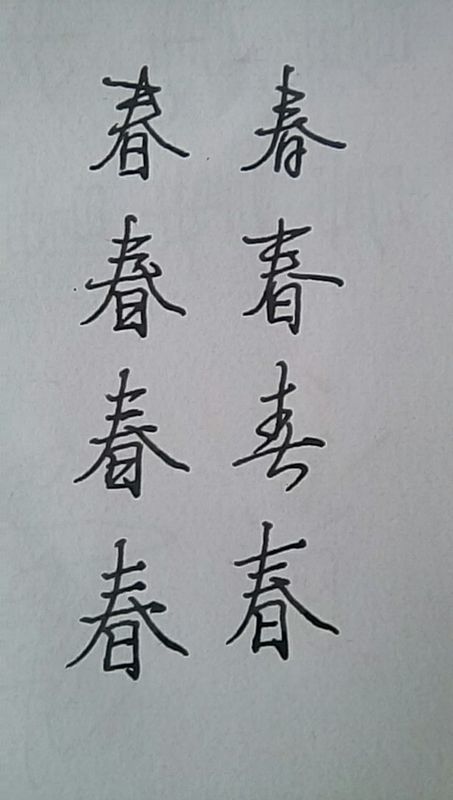 春 春
春 春
春 春
春 春